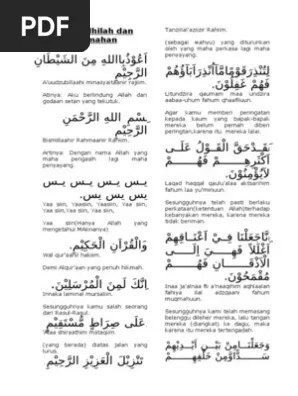 PDF
lhilah dan
nahan
أَعُوْذُبِاللهِ مِنَ الشَّيْطَانِ
الرَّجِيْمِ
A'uudzubillaahi minasyaithaanir rajiim.
Artinya: Aku berlindung Allah dari
godaan setan yang terkutuk.
بِسْمِ اللهِ الرَّحْمَنِ
الرَّحِيْمِ
Bismillaahir Rahmaanir Rahiim.
Artinya: Dengan nama Allah yang
maha pengasih lagi maha
penyayang.
يــس يــس يــس يــس
يس يس يس.
Yaa siin, Yaasiin, Yaasiin, Yaa siin,
Yaa siin,Yaa siin, Yaa siin,
Yaa siin(Hanya Allah yang
mengetahui Maknanya)
وَالْقُرْاَنِ الْحَكِيْمِ.
Wal qur'aanil hakiim.
Demi Alqur'aan yang penuh hikmah.
اِنَّكَ لَمِنَ الْمُرْسَلِيْنَ.
Innaka laminal mursaliin.
Sesungguhnya kamu salah seorang
dari Rasul-Rasul.
عَلَى صِرَاطٍ مُّسْتَقِيْمٍ
'Alaa shiraathim mstaqiim.
(yang berada) diatas jalan yang
lurus.
تَنْزِيْلَ الْعَزِيْزِ الرَّحِيْمِ
Tanziilal'aziizir Rahiim.
(sebagai wahyu) yang diturunkan
oleh yang maha perkasa lagi maha
penyayang.
لِتُنْذِرَقَوْمًامَّآاُنْذِرَابَآؤُهُمْ
فَهُمْ غٰفِلُوْنَ.
Litundzira qaumam maa undzira
aabaa-uhum fahum ghaafiluun.
Agar kamu memberi peringatan
kepada kaum yang bapak-bapak
mereka belum pernah diberi
peringtan,karena itu mereka lalai.
لَقَدْحَقَّ الْقَوْلُ عَلَى
اَكْثَرِهِمْ فَهُمْ
لاَيُؤْمِنُوْنَ.
Laqad haqqal qaulu'alaa aktsarihim
fahum laa yu'minuun.
Sesungguhnya telah pasti berlaku
perkataan(ketentuan Allah)terhadap
kebanyakan mereka, karena mereka
tidak beriman.
اِنَّاجَعَلْنَا فِيْ اَعْنَاقِهِمْ
اَغْلٰلاً فَهِيَ اِلَى
الْاَذْقَانِ فَهُمْ
مُّقْمَحُوْنَ.
Inaa ja'alnaa fii a'naaqihim aghlaalan
fahiya ilal adzqaani fahum
muqmahuun.
Sesungguhnya kami telah memasang
belenggu dileher mereka, lalu tangan
mereka (diangkat) ke dagu, maka
karena itu mereka tertengadah.
وَجَعَلْنَامِنْ بَيْنِ اَيْدِيْهِمْ
سَدًّاوَّمِنْ خَلْفِهِمْ